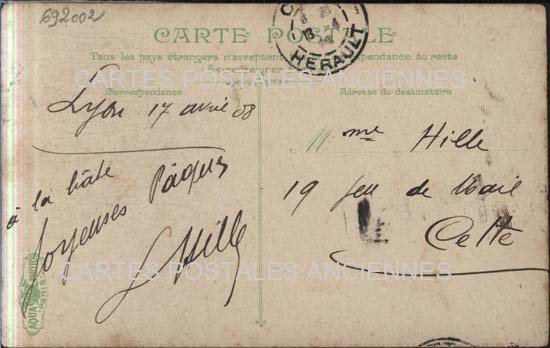 692002
CARTE POSTALE
Tous les pays étrangers n'acceptent
pondance au recto
Correspondance
Adresse du destinataire
CARTES POSTALES ANCIENNES
HÉRAULT
Lyon 17 avril 08
à la hâte
Joyeuses Pâques
Hille
Mme Hille
19 Jeu de Mail
Cette
CARTES POSTALES ANCIENNES
AQUA
PARIS